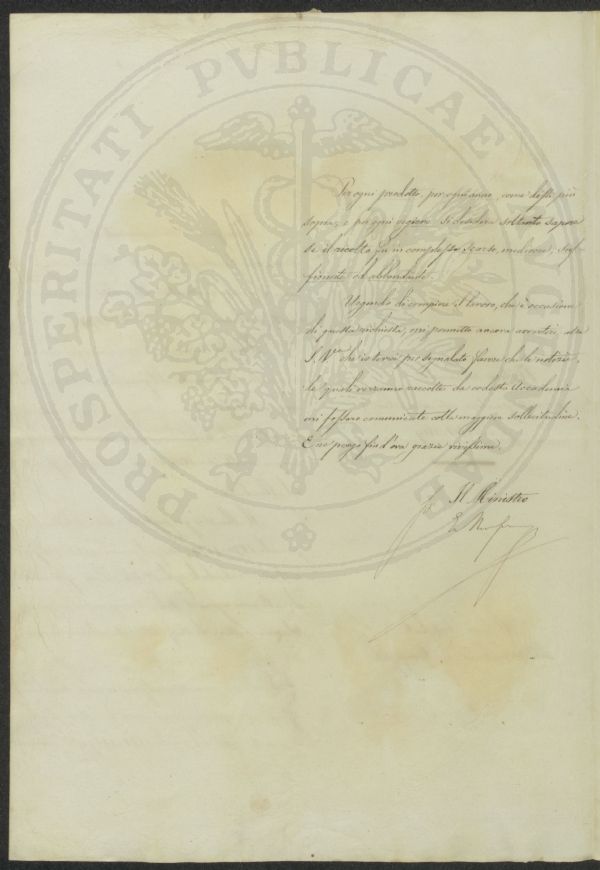 PROSPERITATI PVBLICAE
Per ogni prodotto, per ogni anno, come dissi più
sopra, e per ogni regione si desidera soltanto sapere
se il raccolto fu in complesso scarso, mediocre, suf-
ficiente od abbondante.
Urgendo di compiere il lavoro, che è occasione
di questa richiesta, mi permetto ancora avvertire alla
S. V.ra che io terrei per segnalato favore che le notizie
le quali verranno raccolte da codesta Accademia
mi fossero comunicate colla maggiore sollecitudine.
E ne porgo fin d'ora grazie vivissime.
Il Ministro